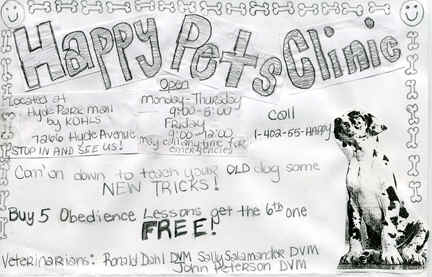 Happy Pets Clinic
Located at
Hyde Park mall
by KOHLS
7266 Hyde Avenue
STOP IN AND SEE US!
Open
Monday-Thursday
9:00-5:00
Friday
9:00-12:00
may call anytime for
emergencies
Call
1-402-55-HAPPY
Com'on down to teach your OLD dog some
NEW TRICKS!
Buy 5 Obedience Lessons get the 6th one
FREE!
Veterinarians: Ronald Dahl DVM Sally Salamander DVM
John Peterson DVM